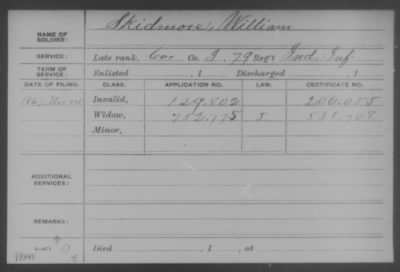 NAME OF SOLDIER: Skidmore, William
SERVICE: Late rank, Cor Co. I, 79 Reg't Ind. Inf
TERM OF SERVICE: Enlisted , 1 Discharged , 1
DATE OF FILING. CLASS. APPLICATION NO. LAW. CERTIFICATE NO.
1867, Nov 14 Invalid, 129.802 206.055
Widow, 752.175 531.708
Minor,
ADDITIONAL SERVICES:
REMARKS:
Died , 1 , at